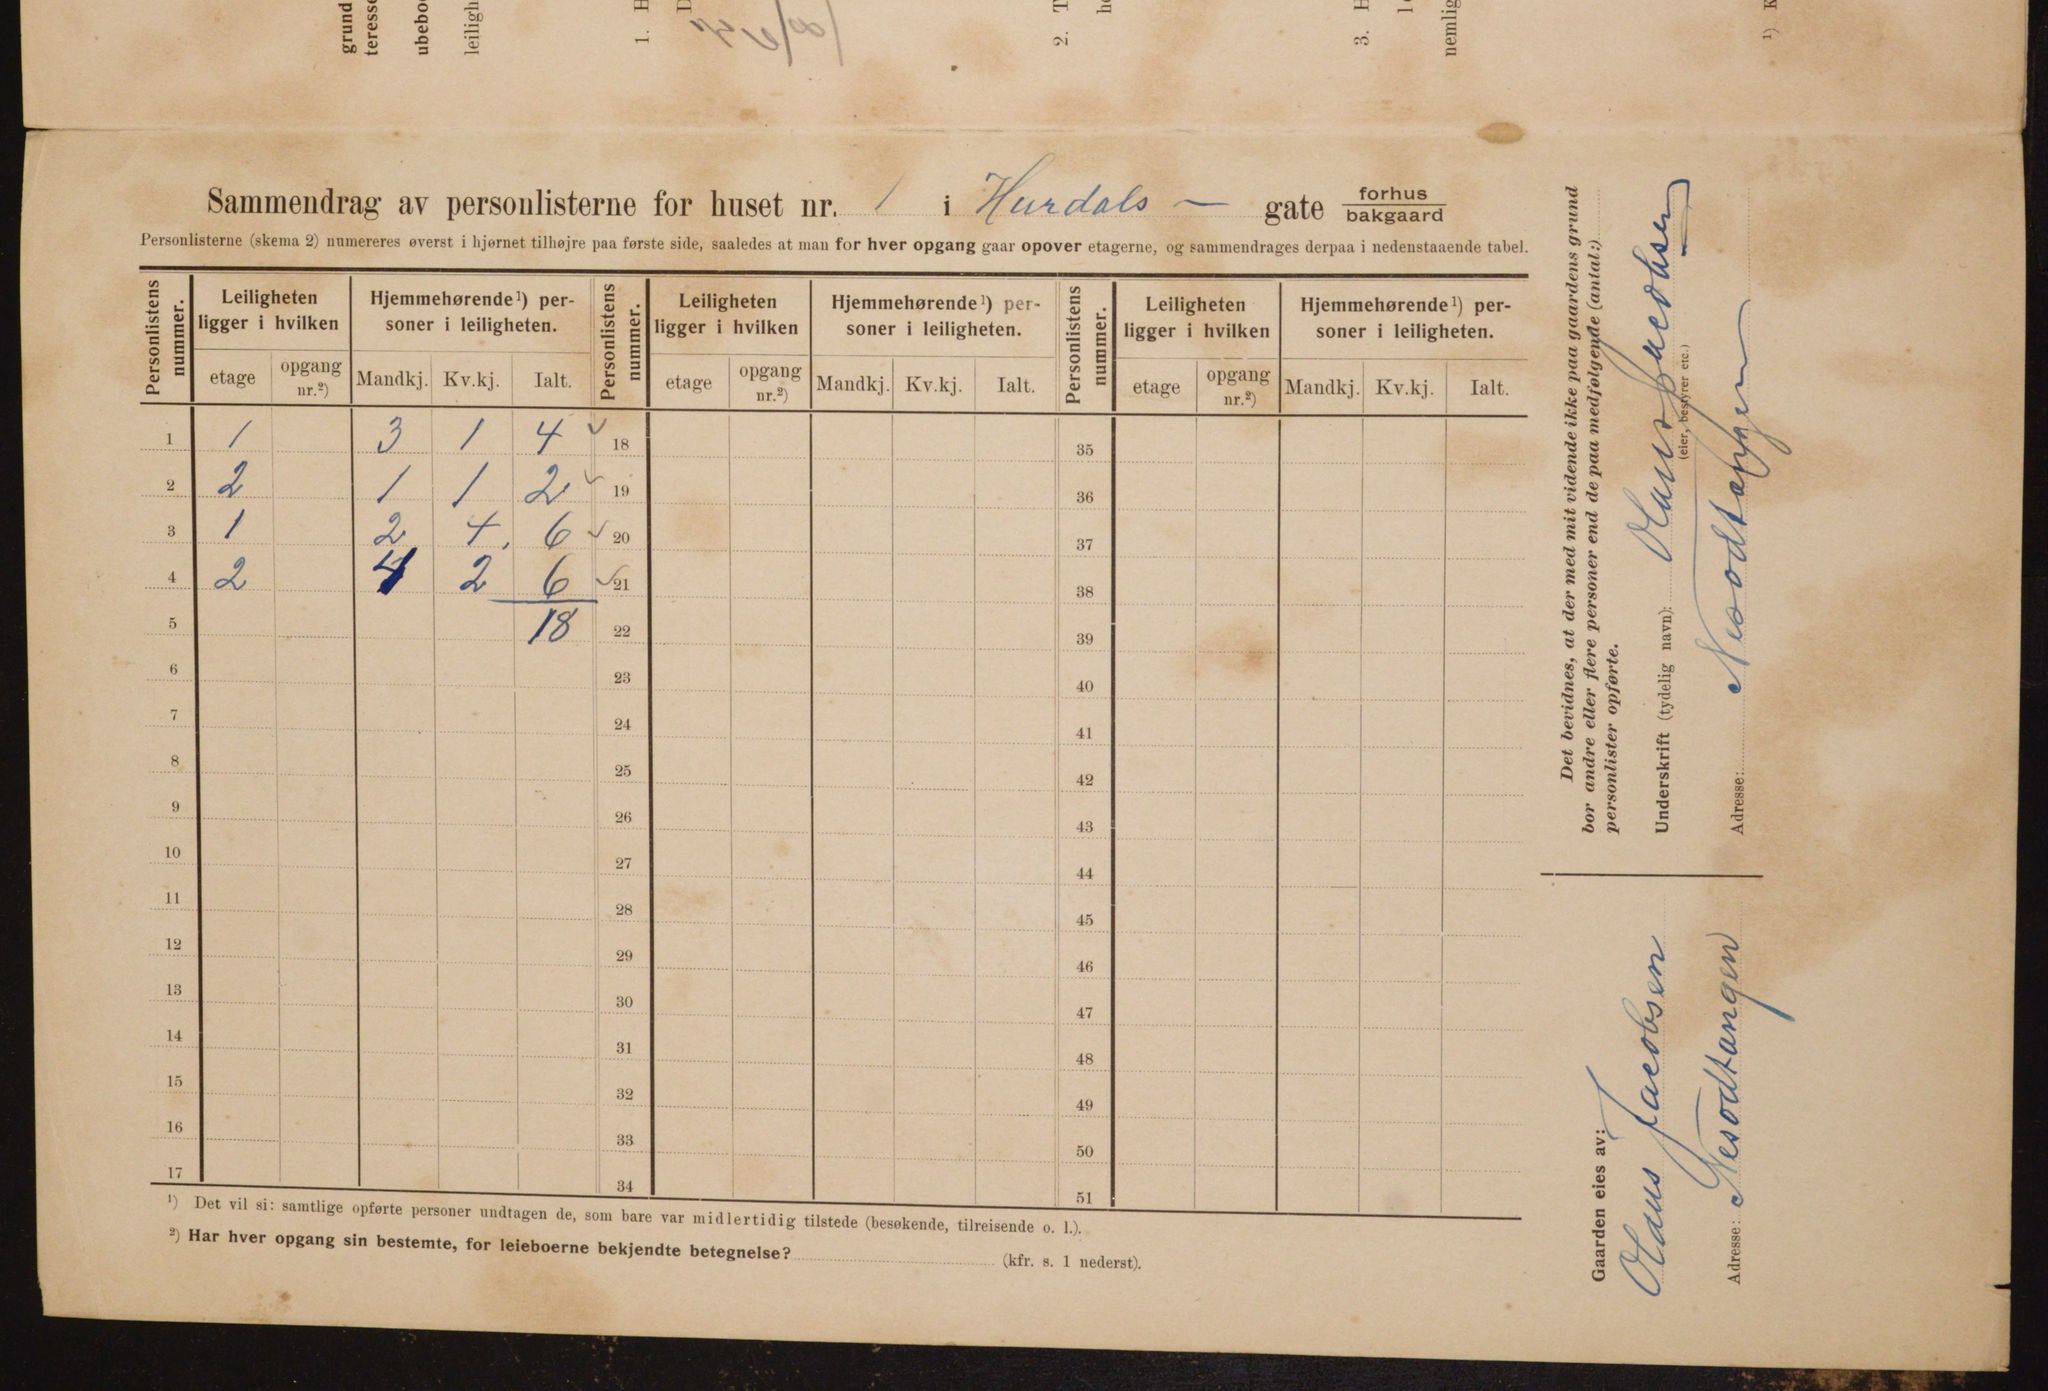 grund
teresse
ubeboe
leiligh
1. H
D
2. T
he
3. H
l
nemlig
¹) K
Sammendrag av personlisterne for huset nr. 1 i Hurdals — gate forhus
bakgaard
Personlisterne (skema 2) numereres øverst i hjørnet tilhøjre paa første side, saaledes at man for hver opgang gaar opover etagerne, og sammendrages derpaa i nedenstaaende tabel.
Personlistens nummer. Leiligheten ligger i hvilken Hjemmehørende¹) personer i leiligheten. Personlistens nummer. Leiligheten ligger i hvilken Hjemmehørende¹) personer i leiligheten. Personlistens nummer. Leiligheten ligger i hvilken Hjemmehørende¹) personer i leiligheten.
etage opgang nr.²) Mandkj. Kv.kj. Ialt. etage opgang nr.²) Mandkj. Kv.kj. Ialt. etage opgang nr.²) Mandkj. Kv.kj. Ialt.
1 1 3 1 4 ✓ 18 35
2 2 1 1 2 ✓ 19 36
3 1 2 4. 6 ✓ 20 37
4 2 4 2 6 ✓ 21 38
5 18 22 39
6 23 40
7 24 41
8 25 42
9 26 43
10 27 44
11 28 45
12 29 46
13 30 47
14 31 48
15 32 49
16 33 50
17 34 51
¹) Det vil si: samtlige opførte personer undtagen de, som bare var midlertidig tilstede (besøkende, tilreisende o. l.).
²) Har hver opgang sin bestemte, for leieboerne bekjendte betegnelse? (kfr. s. 1 nederst).
Det bevidnes, at der med mit vidende ikke paa gaardens grund
bor andre eller flere personer end de paa medfølgende (antal:)
personlister opførte.
Underskrift (tydelig navn): Olaus Jacobsen
(eier, bestyrer etc.)
Adresse: Nesodtangen
Gaarden eies av:
Olaus Jacobsen
Adresse: Nesodtangen